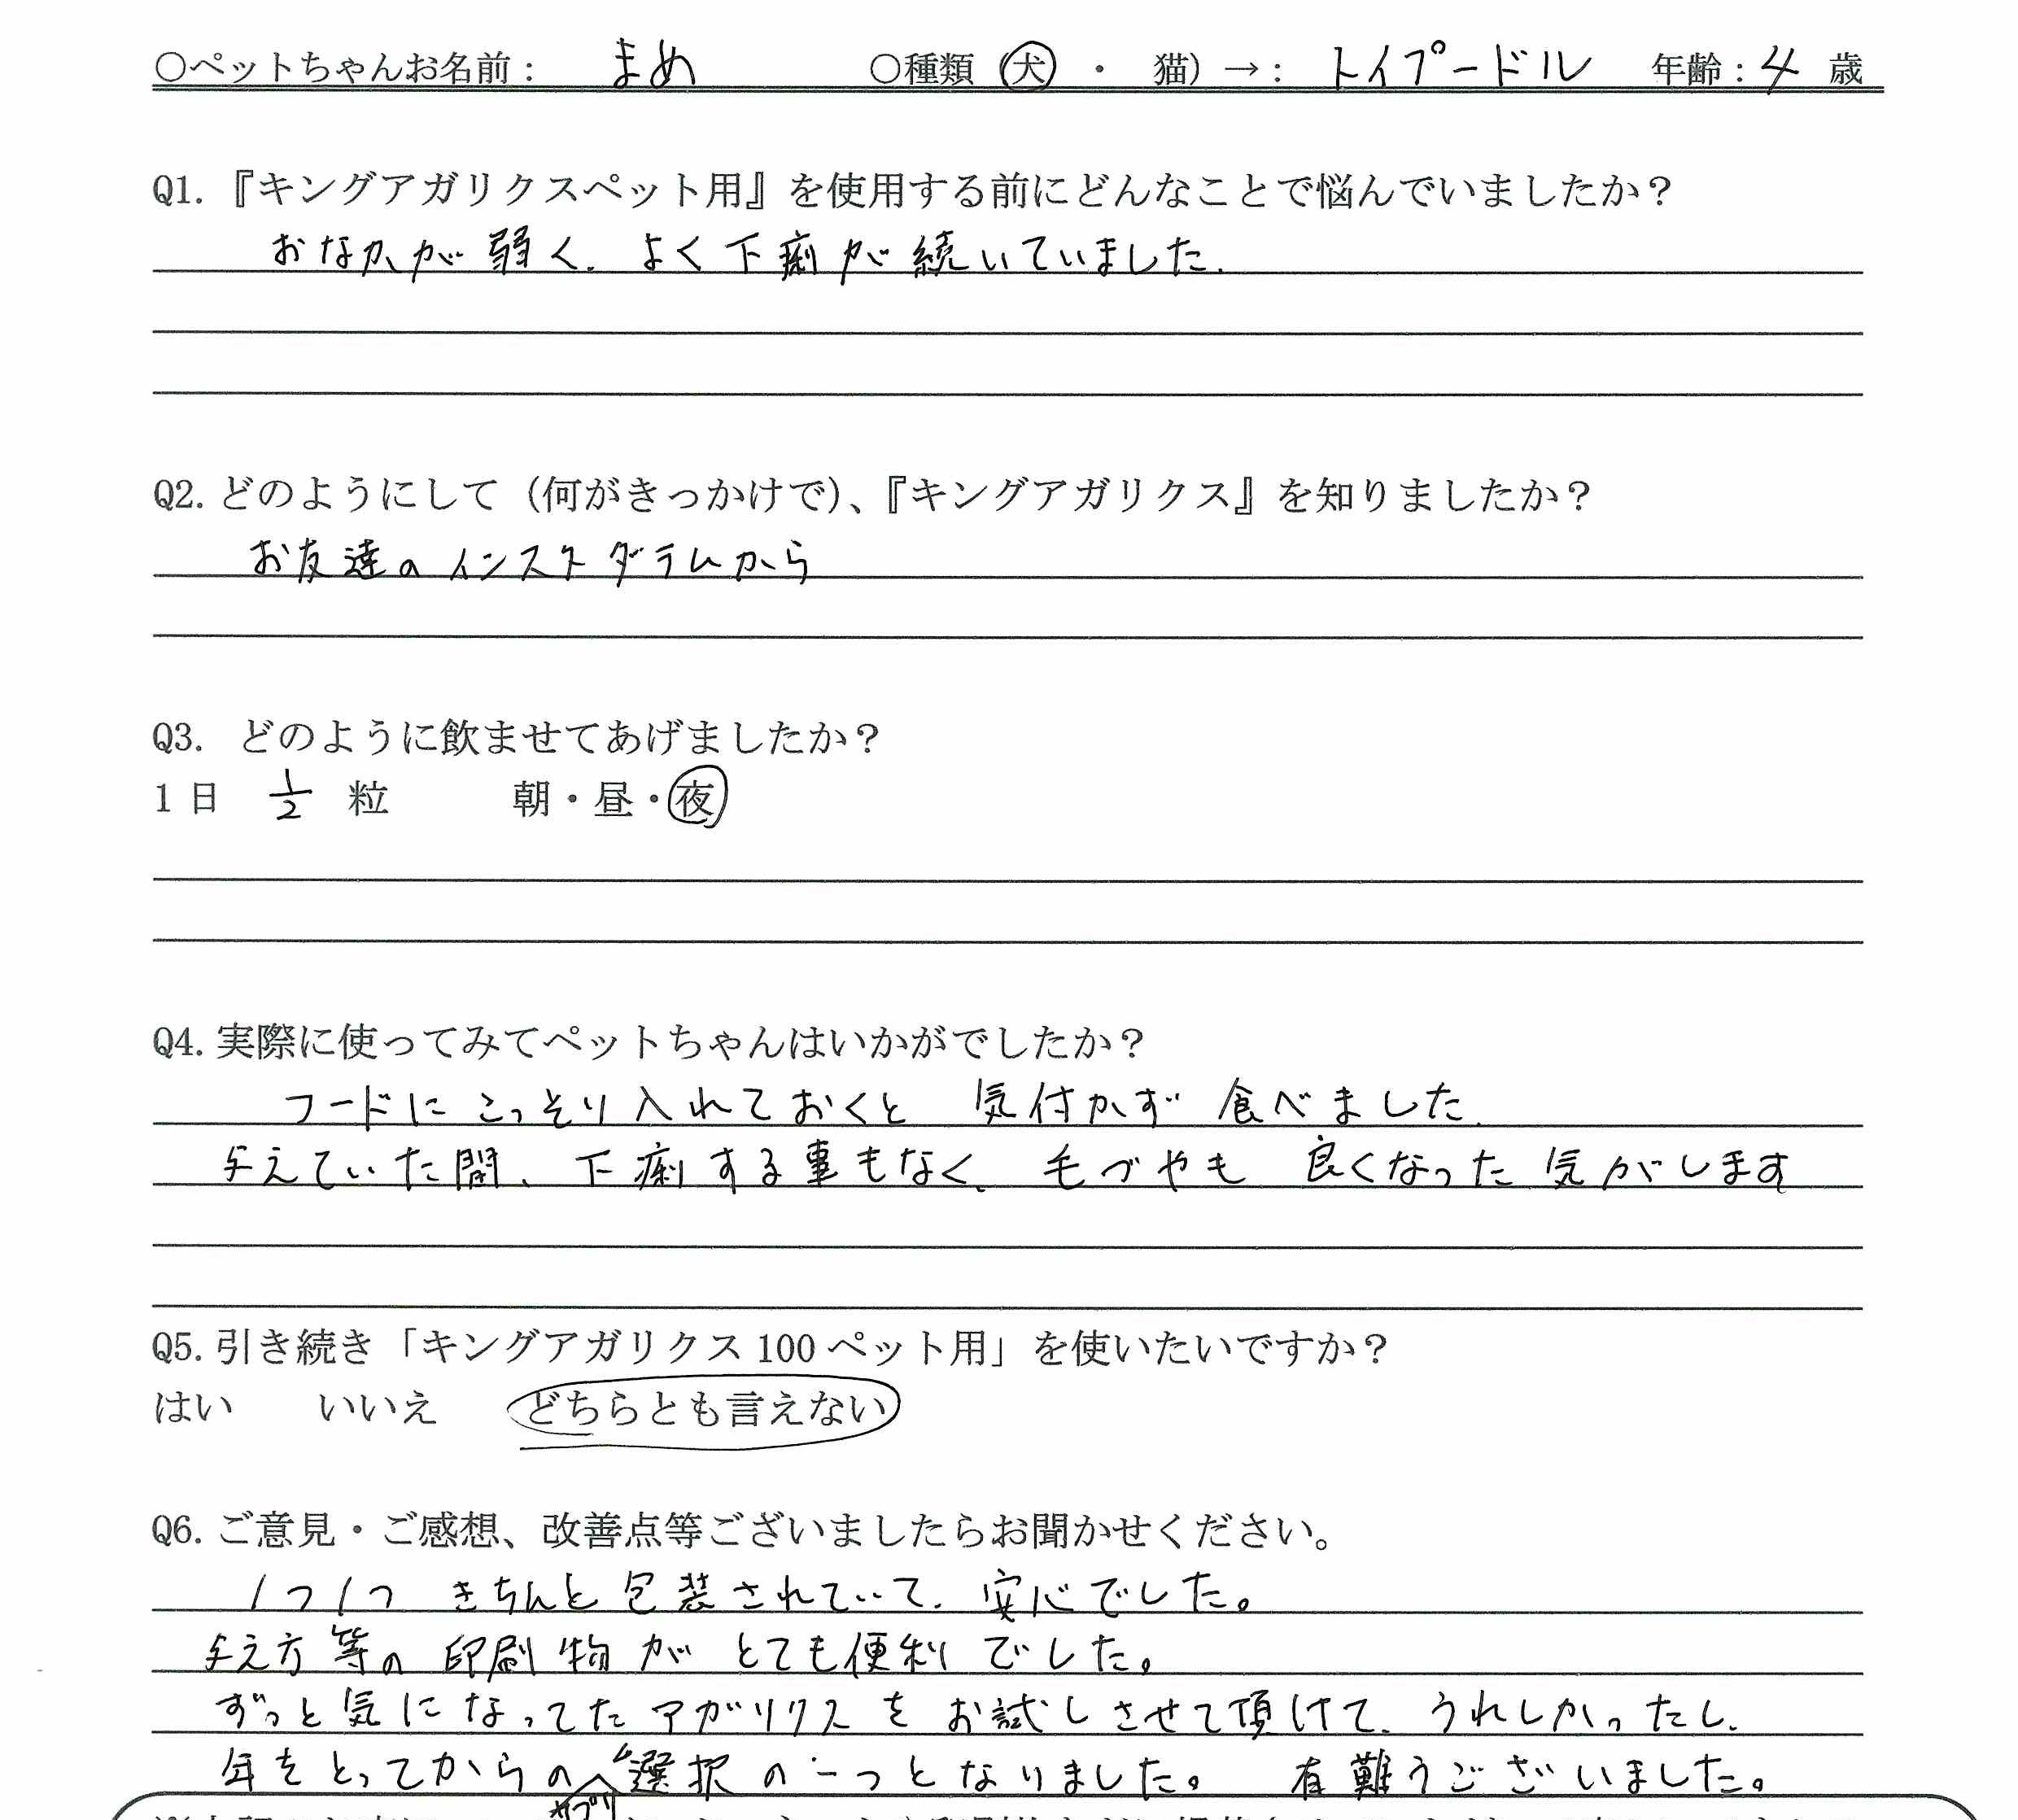 ○ペットちゃんお名前： まめ ○種類（犬・猫）→： トイプードル 年齢：4 歳
Q1.『キングアガリクスペット用』を使用する前にどんなことで悩んでいましたか？
おなかが弱く、よく下痢が続いていました.
Q2.どのようにして（何がきっかけで）、『キングアガリクス』を知りましたか？
お友達のインスタグラムから
Q3. どのように飲ませてあげましたか？
1日 1/2 粒 朝・昼・夜
Q4.実際に使ってみてペットちゃんはいかがでしたか？
フードにこっそり入れておくと 気付かず 食べました.
与えていた間、下痢する事もなく、毛づやも 良くなった気がします
Q5.引き続き「キングアガリクス100ペット用」を使いたいですか？
はい いいえ どちらとも言えない
Q6.ご意見・ご感想、改善点等ございましたらお聞かせください。
1つ1つ きちんと包装されていて、安心でした。
与え方等の 印刷物が とても便利でした。
ずっと気になってたアガリクスを お試しさせて頂けて、うれしかったし、
年をとってからのサプリ選択の一つとなりました。 有難うございました。